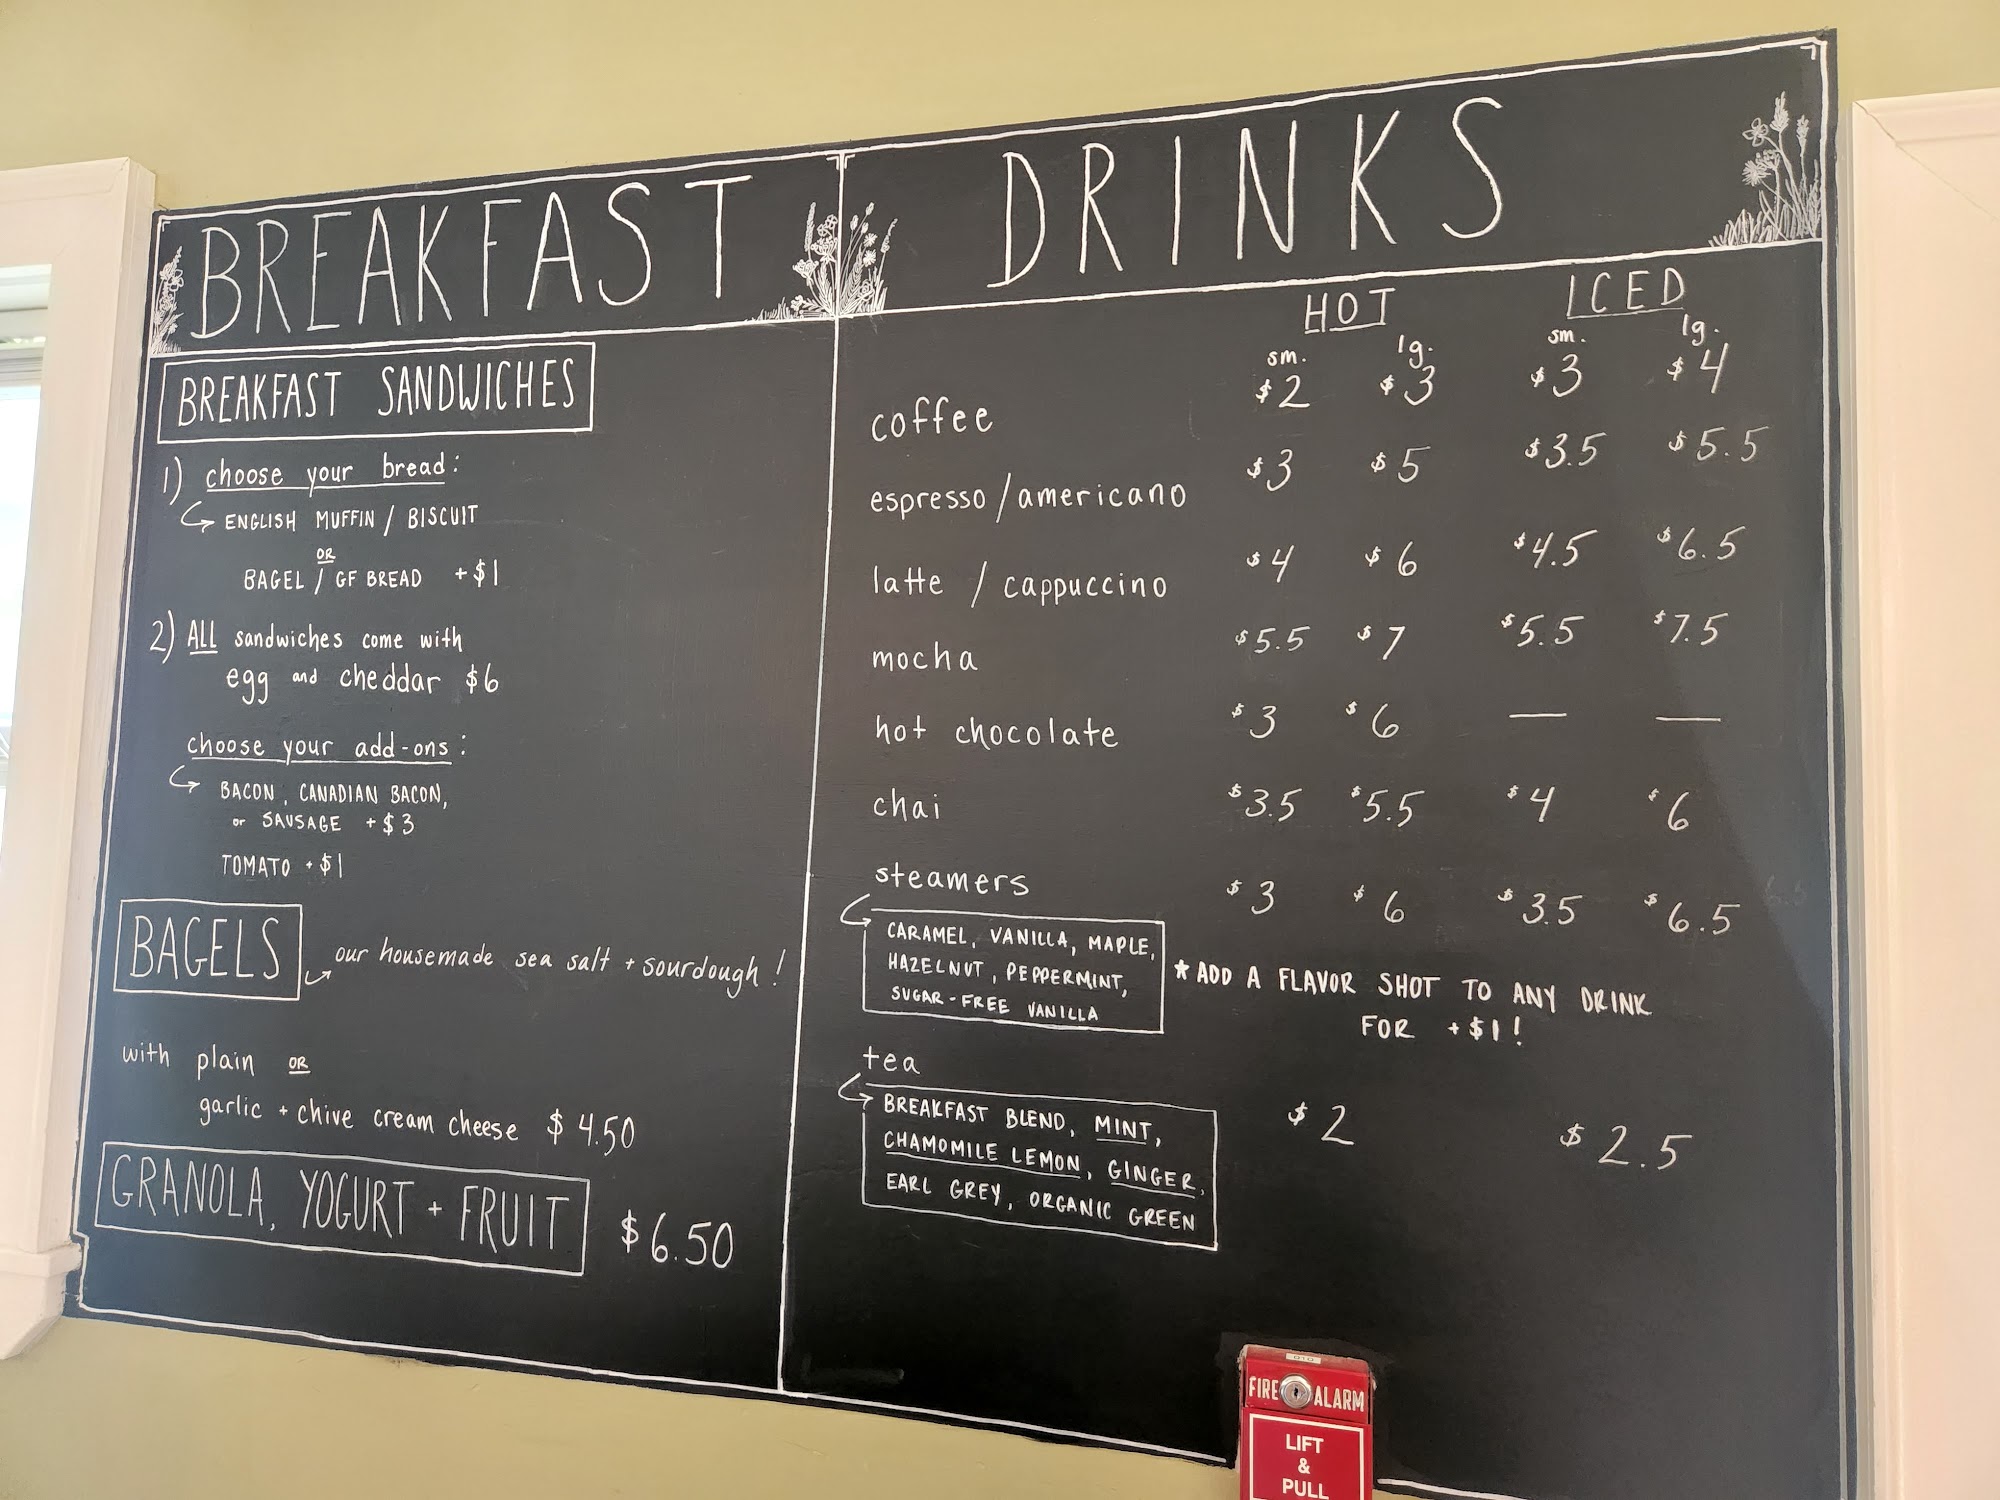 BREAKFAST
BREAKFAST SANDWICHES
1) choose your bread:
ENGLISH MUFFIN / BISCUIT
OR
BAGEL / GF BREAD +$1
2) ALL sandwiches come with
egg and cheddar $6
choose your add-ons:
BACON, CANADIAN BACON,
or SAUSAGE +$3
TOMATO +$1
BAGELS our housemade sea salt + sourdough!
with plain OR
garlic + chive cream cheese $4.50
GRANOLA, YOGURT + FRUIT $6.50
DRINKS
HOT ICED
sm. lg. sm. lg.
coffee $2 $3 $3 $4
espresso / americano $3 $5 $3.5 $5.5
latte / cappuccino $4 $6 $4.5 $6.5
mocha $5.5 $7 $5.5 $7.5
hot chocolate $3 $6 — —
chai $3.5 $5.5 $4 $6
steamers $3 $6 $3.5 $6.5
CARAMEL, VANILLA, MAPLE,
HAZELNUT, PEPPERMINT,
SUGAR-FREE VANILLA
*ADD A FLAVOR SHOT TO ANY DRINK
FOR +$1!
tea $2 $2.5
BREAKFAST BLEND, MINT,
CHAMOMILE LEMON, GINGER,
EARL GREY, ORGANIC GREEN
FIRE ALARM
LIFT
&
PULL